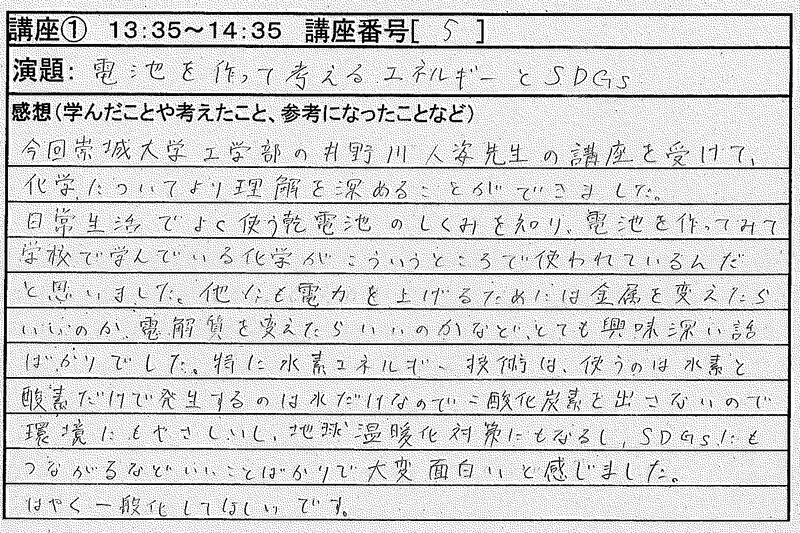 講座① 13:35～14:35 講座番号[ 5 ]
演題: 電池を作って考えるエネルギーとSDGs
感想(学んだことや考えたこと、参考になったことなど)
今回崇城大学工学部の井野川人姿先生の講座を受けて、
化学についてより理解を深めることができました。
日常生活でよく使う乾電池のしくみを知り、電池を作ってみて
学校で学んでいる化学がこういうところで使われているんだ
と思いました。他にも電力を上げるためには金属を変えたら
いいのか、電解質を変えたらいいのかなど、とても興味深い話
ばかりでした。特に水素エネルギー技術は、使うのは水素と
酸素だけで発生するのは水だけなので二酸化炭素を出さないので
環境にもやさしいし、地球温暖化対策にもなるし、SDGsにも
つながるなどいいことばかりで大変面白いと感じました。
はやく一般化してほしいです。